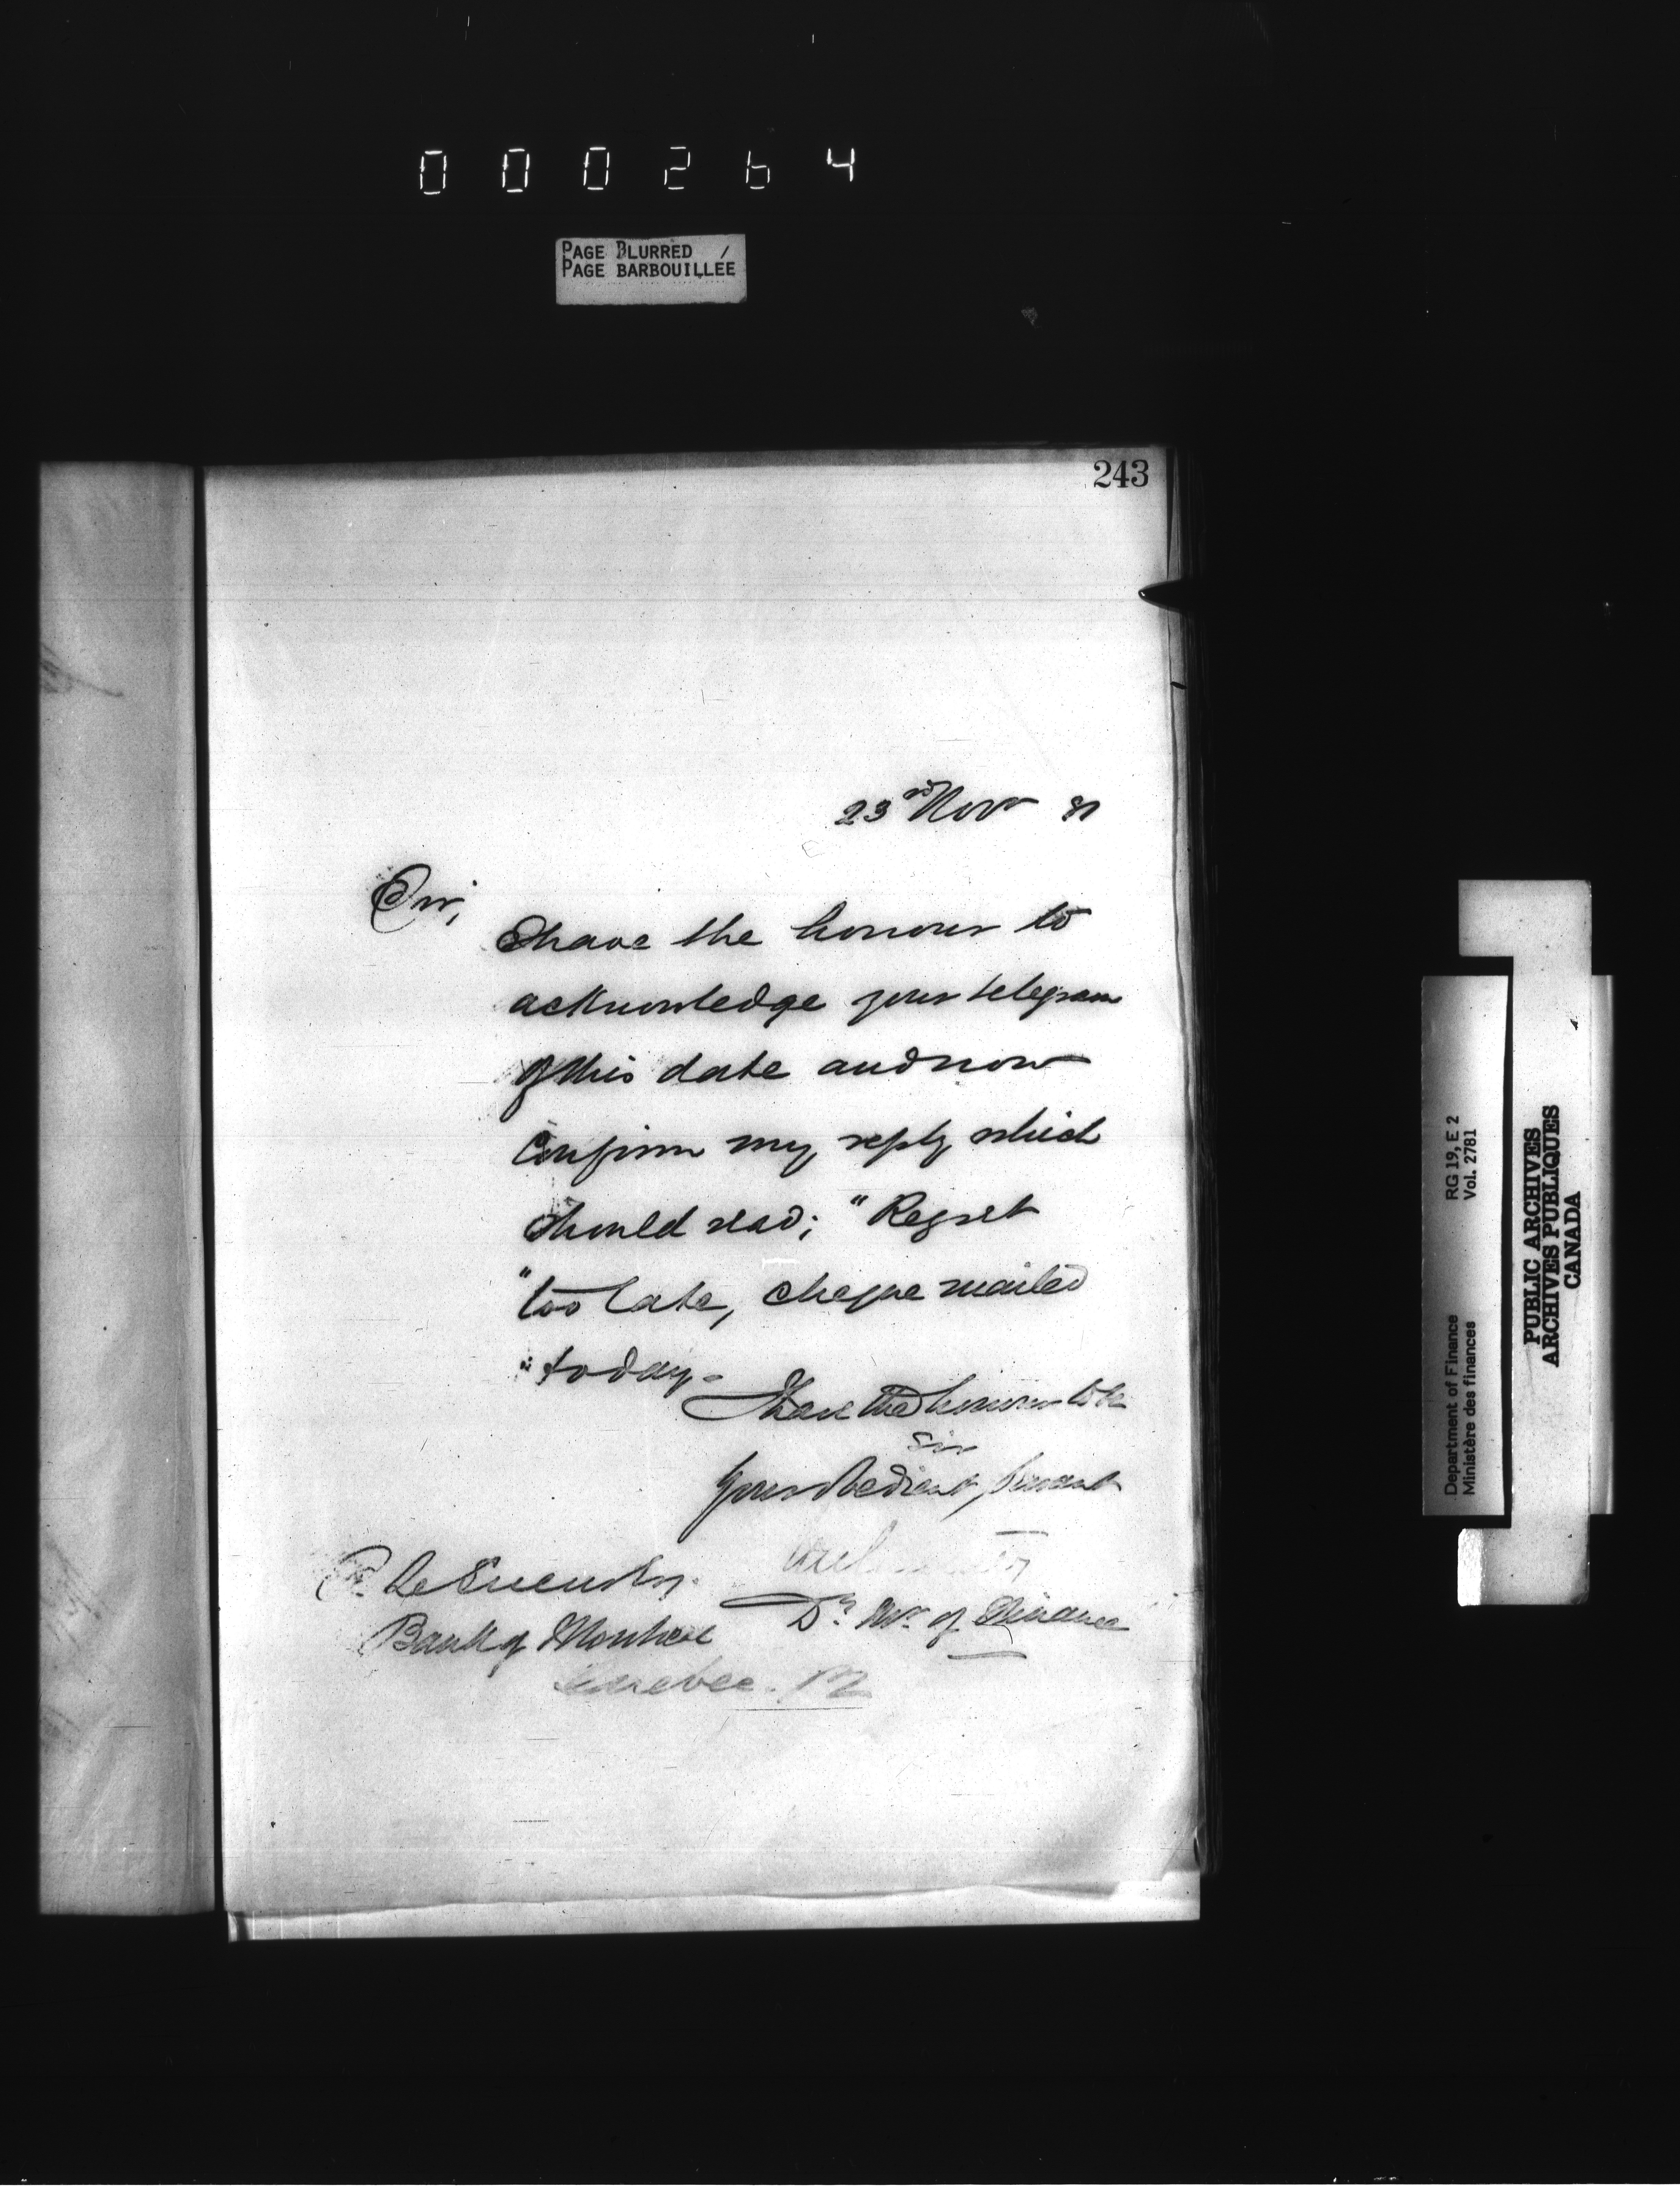 000264
PAGE BLURRED /
PAGE BARBOUILLÉE
243
23rd Novr 81
Sir,
I have the honour to
acknowledge your telegram
of this date and now
confirm my reply which
should read; "Regret
"too late, cheque mailed
"today.
I have the honour to be
Sir
Your obedient, Servant
Dy. Mr. of Finance
Bank of Montreal
Quebec. P2
Department of Finance RG 19, E 2
Ministère des finances Vol. 2781
PUBLIC ARCHIVES
ARCHIVES PUBLIQUES
CANADA